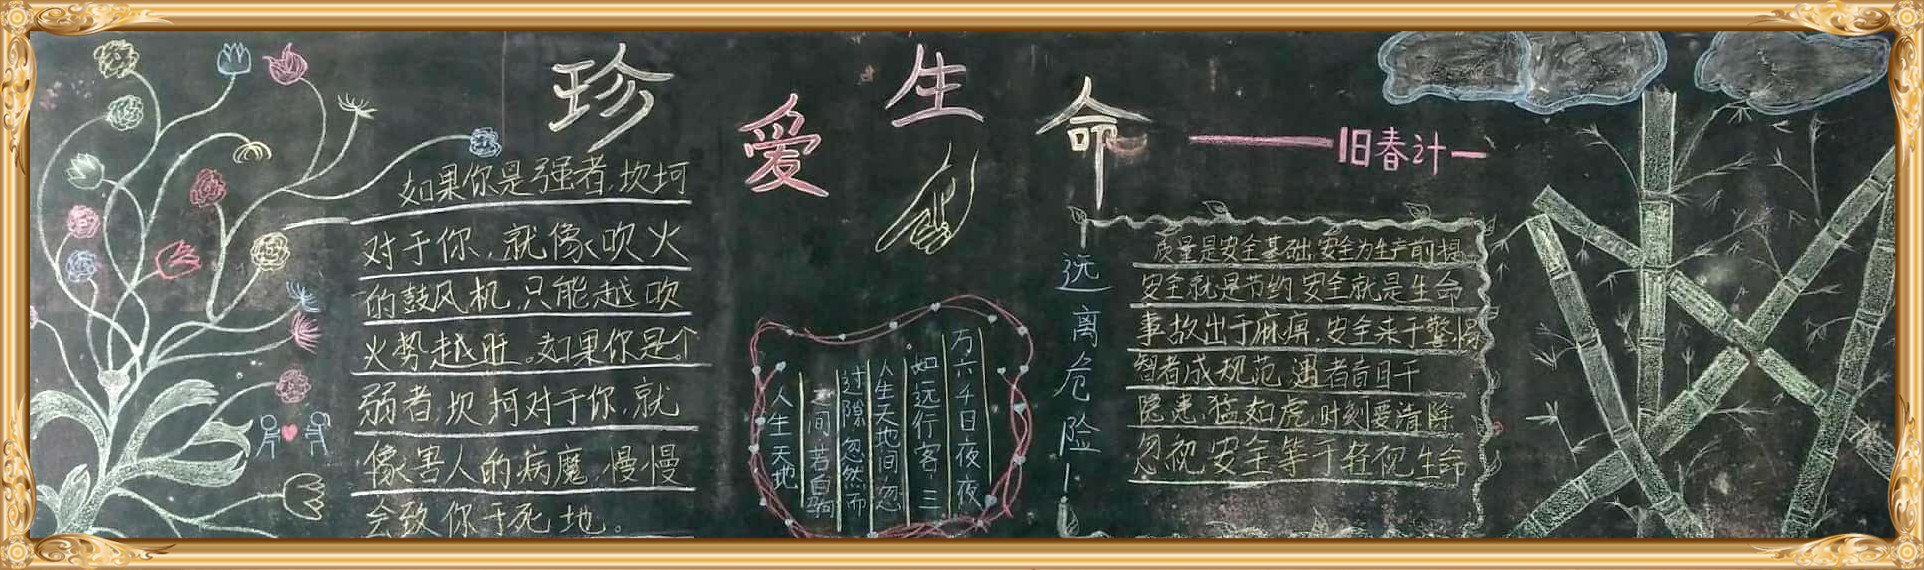 珍爱生命
旧春计
如果你是强者,坎坷
对于你,就像吹火
的鼓风机,只能越吹
火势越旺。如果你是个
弱者,坎坷对于你,就
像害人的病魔,慢慢
会致你于死地。
万六千日夜夜
如远行客,三
人生天地间忽
过隙忽然而
间若白驹
人生天地
远离危险
质量是安全基础,安全为生产前提
安全就是节约,安全就是生命
事故出于麻痹,安全来于警惕
智者成规范,遇者盲目干
隐患猛如虎,时刻要清除
忽视安全等于轻视生命